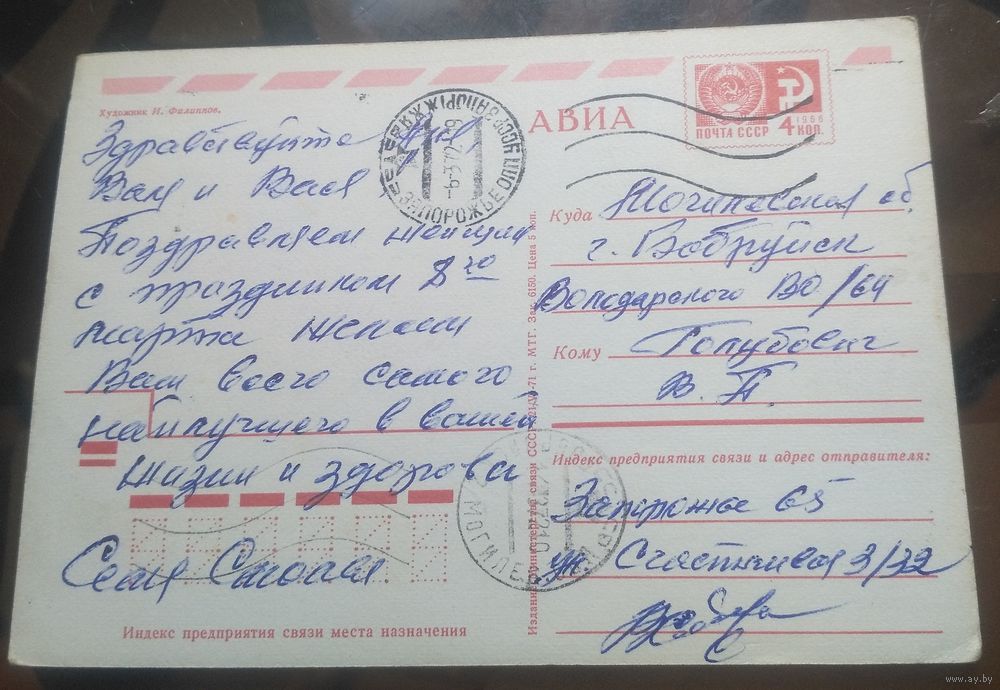 Художник И. Филиппов.
АВИА
ПОЧТА СССР
1966
4 КОП.
ЗАПОРОЖЬЕ
-6-3-72
Здравствуйте
Валя и Вася
Поздравляем женщин
с праздником 8го
марта желаем
Вам всего самого
наилучшего в вашей
жизни и здоровья
Семя
Индекс предприятия связи места назначения
Издание Министерства связи СССР
71 г. МТГ. Зак. 6150. Цена 5 коп.
Куда Могилевская об.
г. Бобруйск
Володарского 130/64
Кому Голубович
В. П.
МОГИЛЕВ
Индекс предприятия связи и адрес отправителя:
Запорожье 65
ул. Счастливая 3/32
www.ay.by